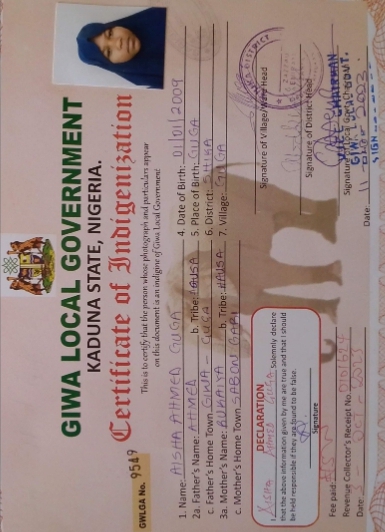 GIWA LOCAL GOVERNMENT
KADUNA STATE, NIGERIA.
Certificate of Indigenization
This is to certify that the person whose photograph and particulars appear
on this document is an indigene of Giwa Local Government
GWLGA No. 9549
1. Name: AISHA AHMED GUGA 4. Date of Birth: 01/01/2009
2a. Father's Name: AHMED b. Tribe: HAUSA 5. Place of Birth: GUGA
c. Father's Home Town GIWA - GUGA 6. District: SHIKA
3a. Mother's Name: b. Tribe: HAUSA 7. Village: GUGA
c. Mother's Home Town SABON GARI
DECLARATION
I AISHA AHMED GUGA Solemnly declare
that the above information given by me are true and that I should
be held responsible if they are found to be false.
Signature
Fee paid:
Revenue Collector's Receipt No.
Date:
Signature of Village/Ward Head
DISTRICT
Signature of District Head
CHAIRMAN
GIWA LOCAL GOVT.
Date: